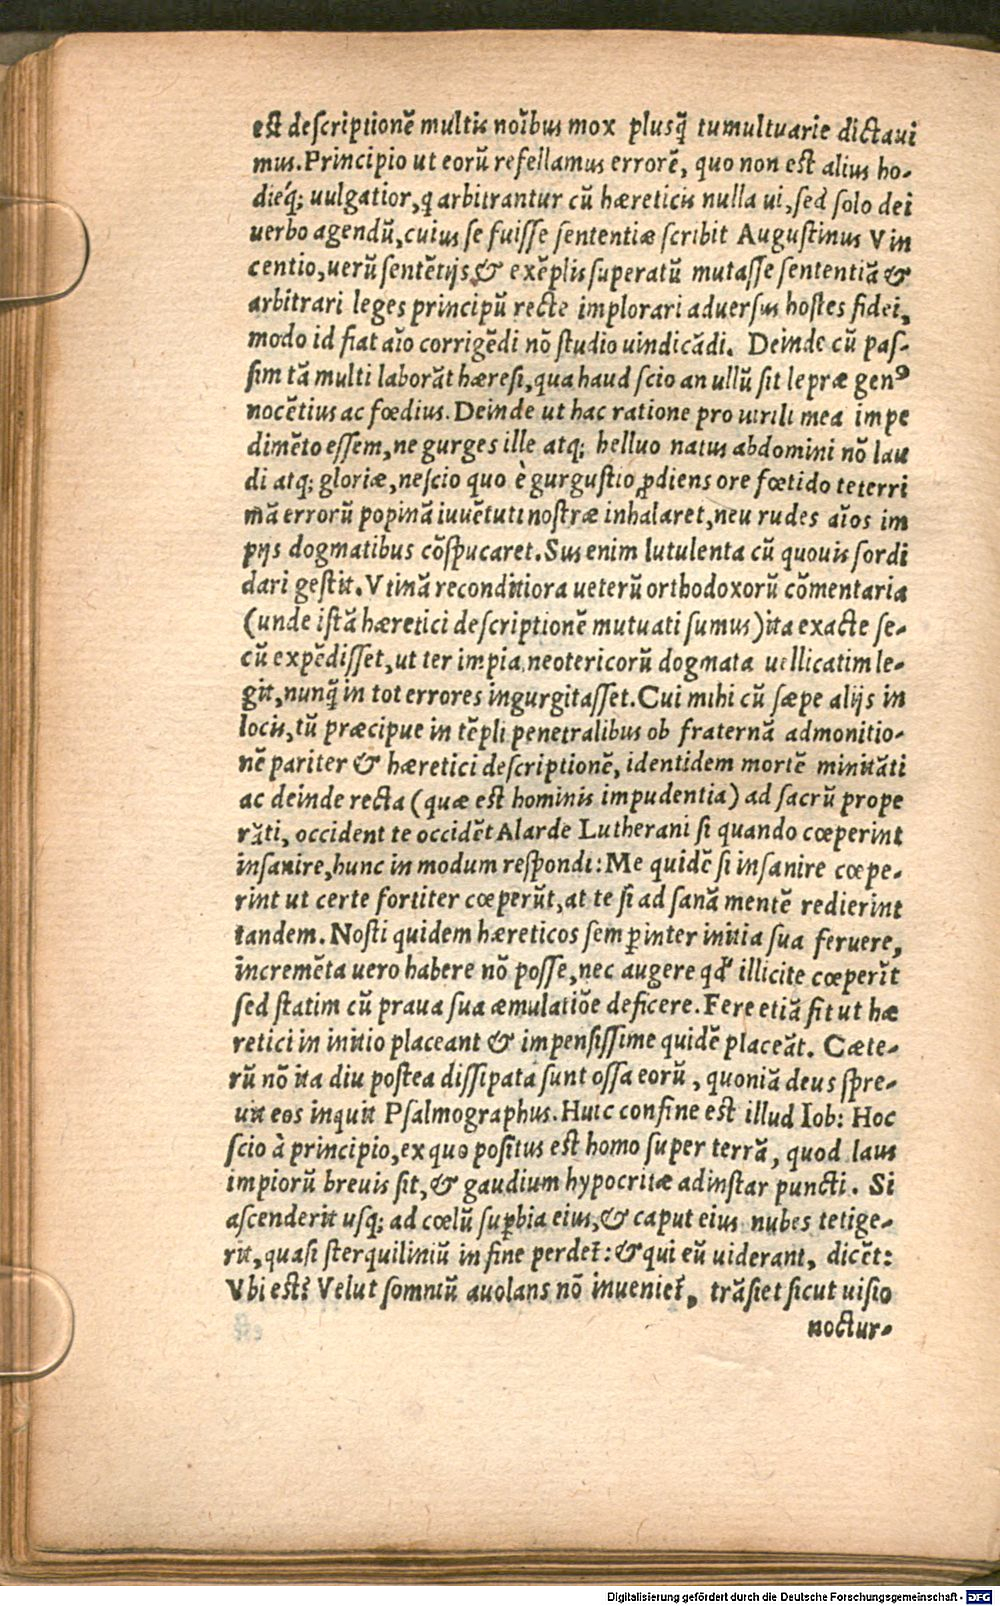 est descriptionē multis noībus mox plusq̃ tumultuarie dictaui
mus. Principio ut eorū refellamus errorē, quo non est alius ho-
dieq́; uulgatior, q arbitrantur cū hæreticis nulla ui, sed solo dei
uerbo agendū, cuius se fuisse sententiæ scribit Augustinus Vin
centio, uerū sentētijs & exēplis superatū mutasse sententiā &
arbitrari leges principū recte implorari aduersus hostes fidei,
modo id fiat aīo corrigēdi nō studio uindicādi. Deinde cū pas-
sim tā multi laborāt hæresi, qua haud scio an ullū sit lepræ genꝰ
nocētius ac fœdius. Deinde ut hac ratione pro uirili mea impe
dimēto essem, ne gurges ille atq; helluo natus abdomini nō lau
di atq; gloriæ, nescio quo è gurgustio ꝓdiens ore fœtido teterri
mā errorū popinā iuuētuti nostræ inhalaret, neu rudes aīos im
pijs dogmatibus cōspucaret. Sus enim lutulenta cū quouis sordi
dari gestit. Vtinā reconditiora ueterū orthodoxorū cōmentaria
(unde istā hæretici descriptionē mutuati sumus) ita exacte se-
cū expēdisset, ut ter impia neotericorū dogmata uellicatim le-
git, nunq̃ in tot errores ingurgitasset. Cui mihi cū sæpe alijs in
locis, tū præcipue in tēpli penetralibus ob fraternā admonitio-
nē pariter & hæretici descriptionē, identidem mortē minitāti
ac deinde recta (quæ est hominis impudentia) ad sacrū prope
rāti, occident te occidēt Alarde Lutherani si quando cœperint
insanire, hunc in modum respondi: Me quidē si insanire cœpe-
rint ut certe fortiter cœperūt, at te si ad sanā mentē redierint
tandem. Nosti quidem hæreticos semꝑ inter initia sua feruere,
incremēta uero habere nō posse, nec augere qd' illicite cœperīt
sed statim cū praua sua æmulatiōe deficere. Fere etiā fit ut hæ
retici in initio placeant & impensissime quidē placeāt. Cæte-
rū nō ita diu postea dissipata sunt ossa eorū, quoniā deus spre-
uit eos inquit Psalmographus. Huic confine est illud Iob: Hoc
scio à principio, ex quo positus est homo super terrā, quod laus
impiorū breuis sit, & gaudium hypocritæ adinstar puncti. Si
ascenderit usq; ad cœlū suꝑbia eius, & caput eius nubes tetige-
rit, quasi sterquiliniū in fine perdet̃: & qui eū uiderant, dicēt:
Vbi est? Velut somniū auolans nō inueniet̃, trāsiet sicut uisio
noctur-
Digitalisierung gefördert durch die Deutsche Forschungsgemeinschaft - DFG